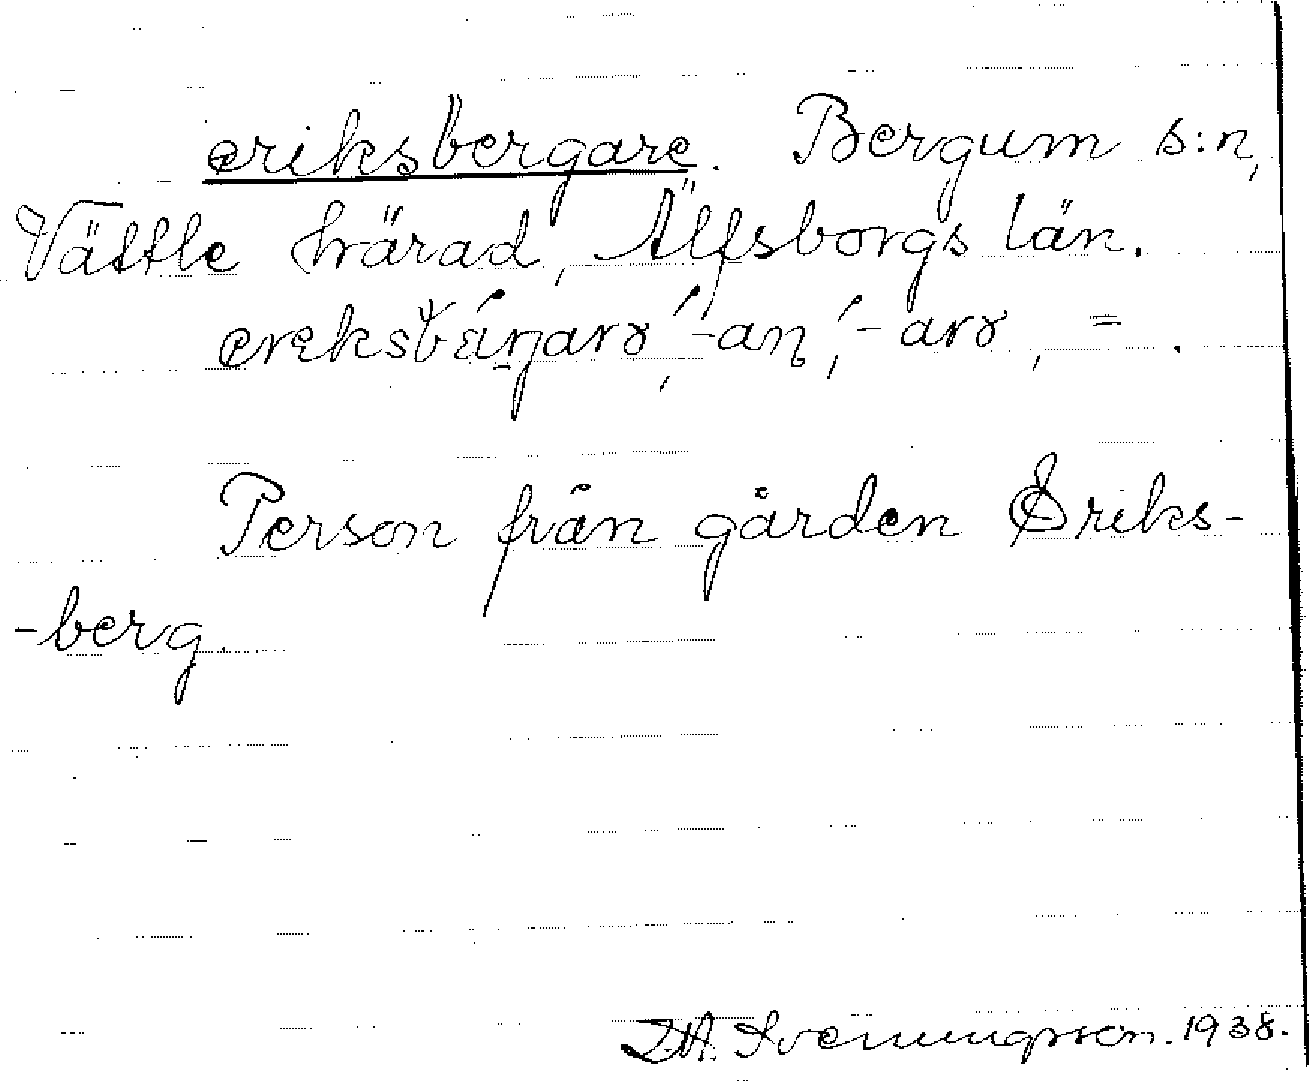 eriksbergare. Bergum s:n,
Vättle härad, Älfsborgs län.
-an, -arɤ, = .
Person från gården Eriks-
-berg.
D.A. Svenningsson. 1938.